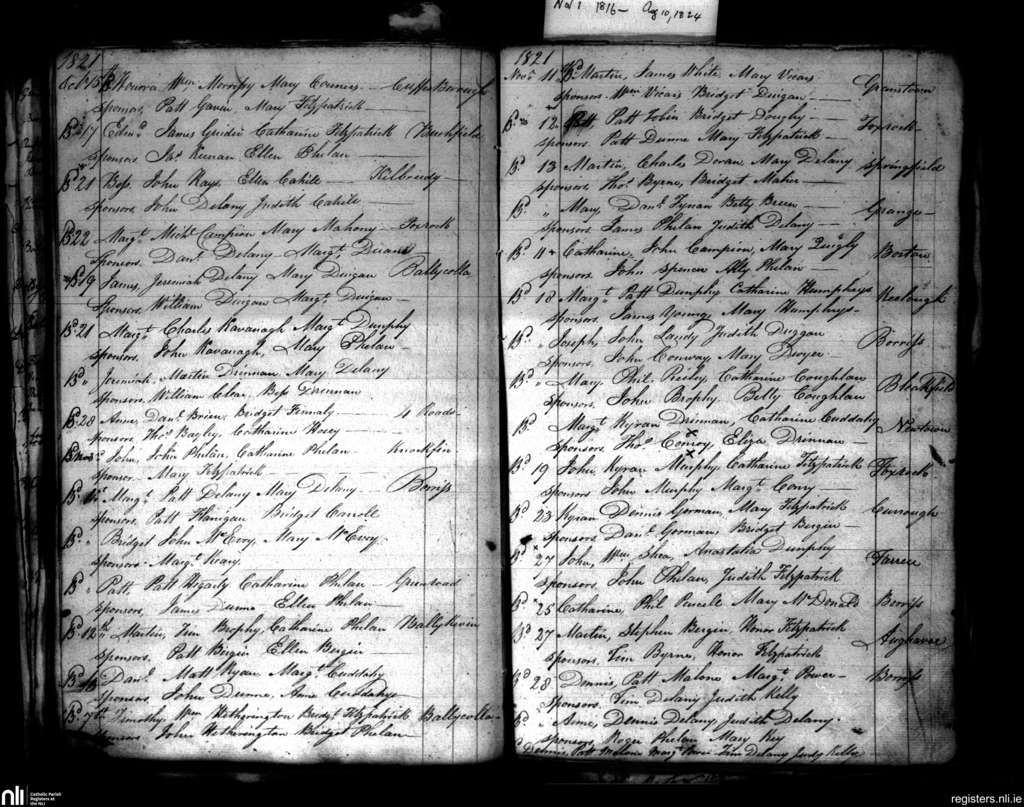 Nov 1 1816 - Aug 10, 1824
1821
Wm. Morrissy Mary Comners - Cuffsborough
Sponsors Patt Gavin Mary Fitzpatrick
Bd 17 Edmd. James Guidir Catharine Fitzpatrick
Sponsors Jas. Keenan Ellen Phelan
Bd 21 Bess, John Kays, Ellen Cahill Kilbreedy
Sponsors, John Delany Judith Cahill
Bd 22 Margt. Michl. Campion Mary Mahony
Sponsors, Danl. Delany Margt.
Bd 19 James, Jeremiah Delany Mary Duigan Ballycolla
Sponsors William Duigan Margt. Duigan
Bd 21 Margt. Charles Kavanagh Margt. Dunphy
Sponsors, John Kavanagh, Mary Phelan
Bd " Jeremiah, Martin Drennan Mary Delany
Sponsors, William Clear, Bess Drennan
Bd 28 Anne, Danl. Brien, Bridget 4 Roads
Sponsors Thos. Bayley, Catharine Hosey
John, John Phelan, Catharine Phelan - Knockfin
Sponsor Mary Fitzpatrick
Margt. Patt Delany Mary Delany Borriss
Sponsors, Patt Flanigan Bridget Carroll
Bd " Bridget John McEvoy, Mary McEvoy
Sponsor Margt.
Bd " Patt, Patt Hegarty Catharine Phelan - Greenroad
Sponsors, James Dunne Ellen Phelan
Bd 12th Martin, Tim Brophy, Catharine Phelan Ballykevin
Sponsors, Patt Bergin Ellen Bergin
Bd Danl. Matt Ryan Margt. Cuddahy
Sponsors John Dunne, Anne Cuddahy
Bd Timothy, Wm Hetherington Bridgt. Fitzpatrick Ballycolla
Sponsors John Hetherington Bridget Phelan
1821
Novr. 11 Bd Martin, James White Mary Vicars Granstown
Sponsors Wm Vicars Bridget Duigan
Bd 12 Patt, Patt Tobin Bridget Foxrock
Sponsors, Patt Dunne Mary Fitzpatrick
Bd 13 Martin, Charles Doran Mary Delany Springfield
Sponsors, Thos. Byrne, Bridget Maher
Bd " Mary, Danl. Tynan Betty Breen Grange
Sponsors James Phelan Judith Delany
Bd 11 Catharine, John Campion, Mary Quigly
Sponsors John Spencer Ally Phelan
Bd 18 Margt. Patt Dunphy Catharine Humphrys
Sponsors James Young Mary Humphrys
Bd " Joseph, John Landy Judith Duggan Borriss
Sponsors, John Conway Mary Dwyer
Bd " Mary, Phil Catharine Coughlan Blackfield
Sponsors, John Brophy Betty Coughlan
Bd Margt Kyran Drinnan Catharine Cuddahy Newtown
Sponsors Thos. Conroy, Eliza Drinnan
Bd 19 John, Kyran Murphy, Catharine Fitzpatrick Foxrock
Sponsors John Murphy Margt. Conry
Bd 23 Kyran Dennis Gorman, Mary Fitzpatrick Curraugh
Sponsors Danl. Gorman, Bridget Bergin
Bd 27 John, Wm Shea, Anastatia Dunphy
Sponsors, John Phelan, Judith Fitzpatrick
Bd 25 Catharine, Phil Purcell Mary McDonald Borriss
Bd 27 Martin, Stephen Bergin, Honor Fitzpatrick
Sponsors, Tim Byrne, Honor Fitzpatrick
Bd 28 Dennis, Patt Malone Margt. Power Borriss
Sponsors, Tim Delany Judith Kelly
Bd " Anne, Dennis Delany Judith Delany
Sponsors Roger Phelan Mary Key
Dennis, Patt Malone Margt Power Tim Delany Judy Kelly
nli
Catholic Parish
Registers at
the NLI
registers.nli.ie